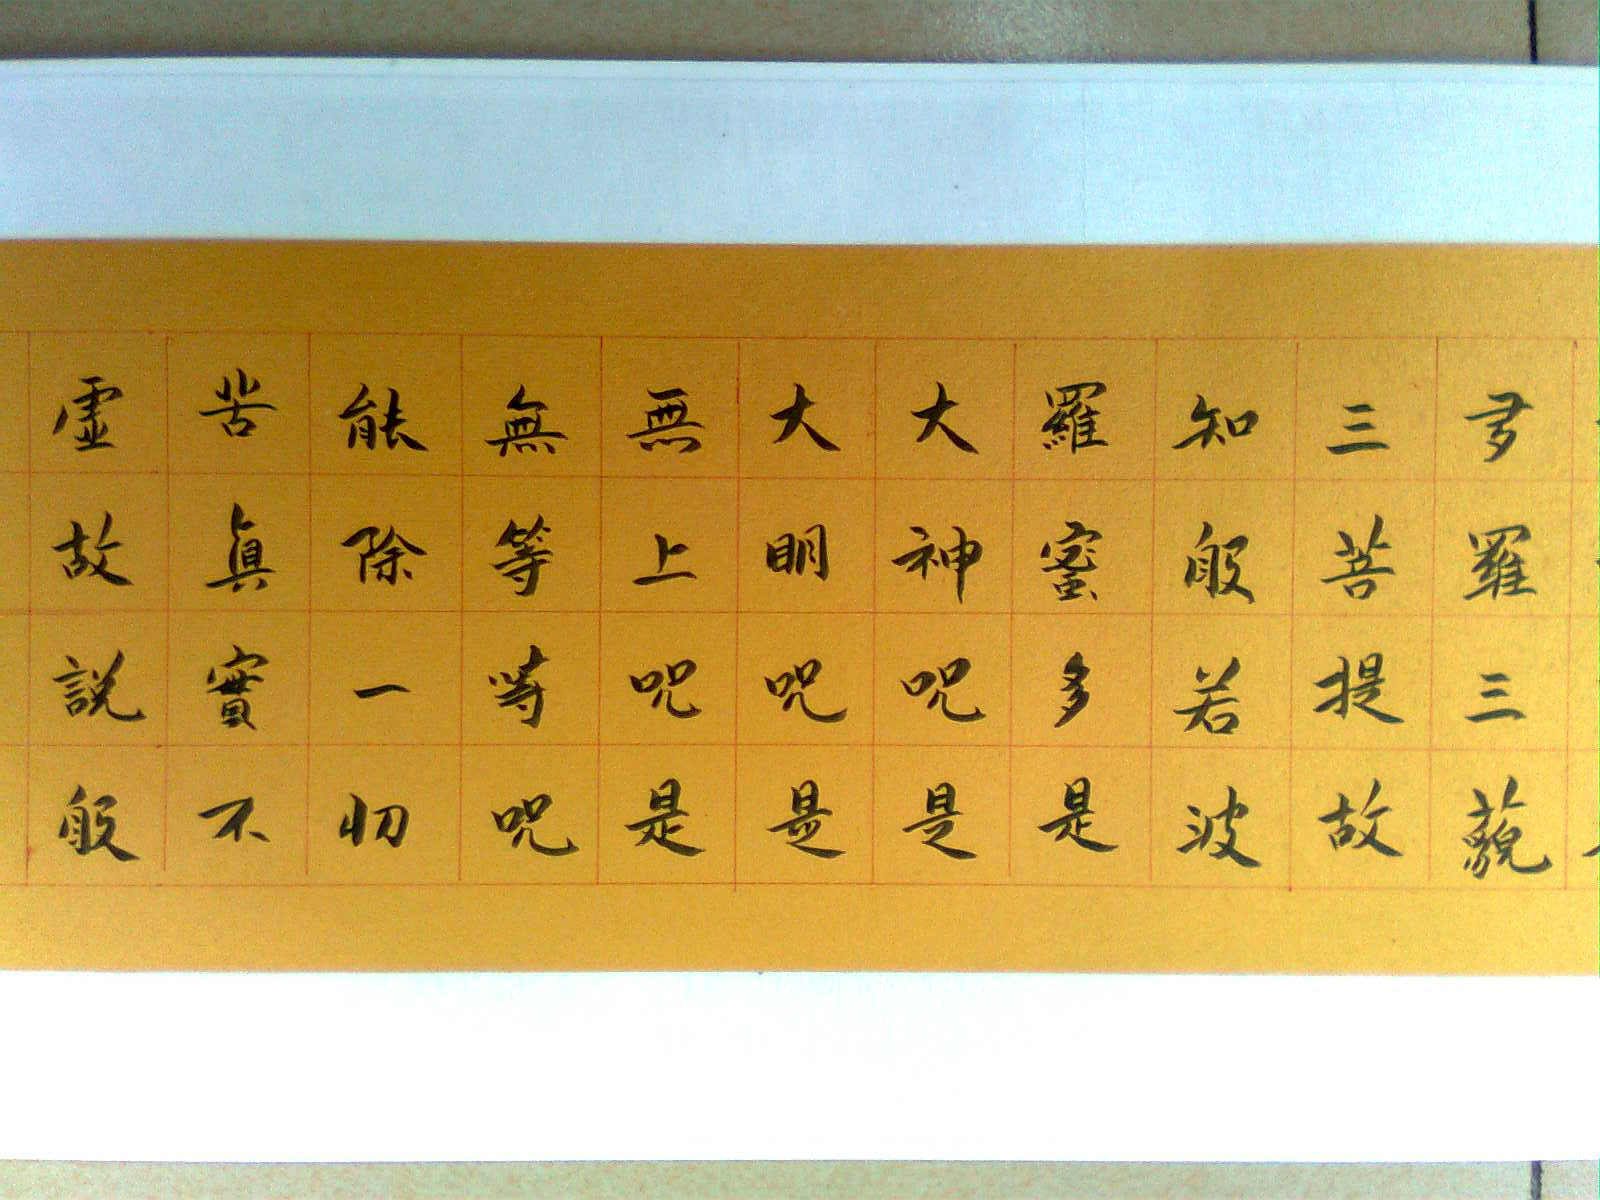 多羅三藐
三菩提故
知般若波
羅蜜多是
大神咒是
大明咒是
無上咒是
無等等咒
能除一切
苦真實不
虛故說般